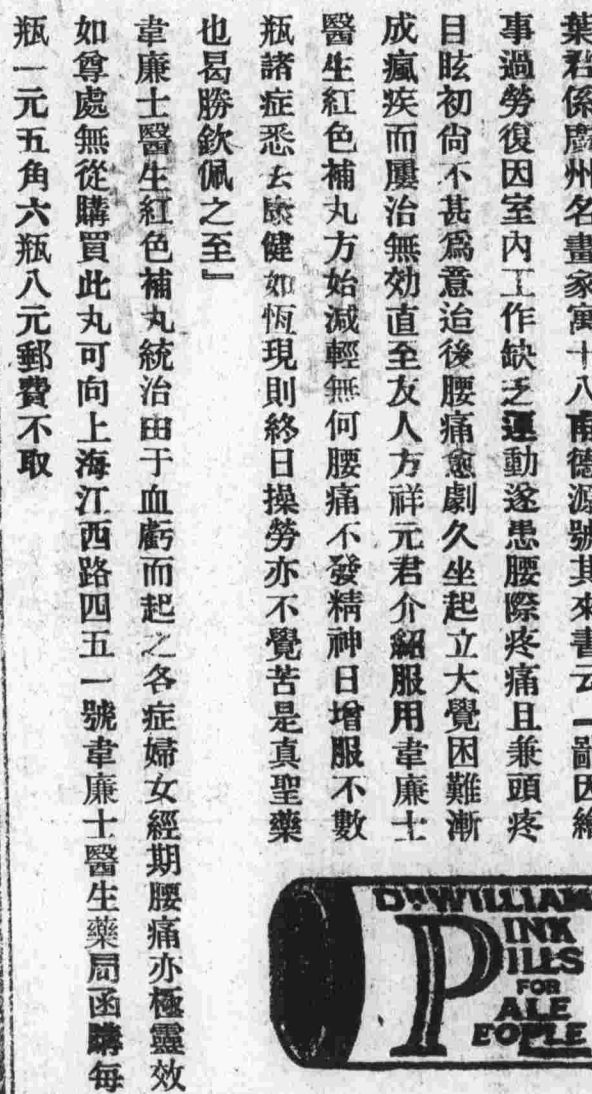 葉君係廣州名畫家寓十八甫德源號其來書云「鄙因繪
事過勞復因室內工作缺乏運動遂患腰際疼痛且兼頭疼
目眩初尙不甚爲意迨後腰痛愈劇久坐起立大覺困難漸
成瘋疾而屢治無効直至友人方祥元君介紹服用韋廉士
醫生紅色補丸方始減輕無何腰痛不發精神日增服不數
瓶諸症悉去康健如恆現則終日操勞亦不覺苦是真聖藥
也曷勝欽佩之至』
韋廉士醫生紅色補丸統治由于血虧而起之各症婦女經期腰痛亦極靈效
如尊處無從購買此丸可向上海江西路四五一號韋廉士醫生藥局函購每
瓶一元五角六瓶八元郵費不取
DR. WILLIAMS
PINK
PILLS
FOR
PALE
PEOPLE